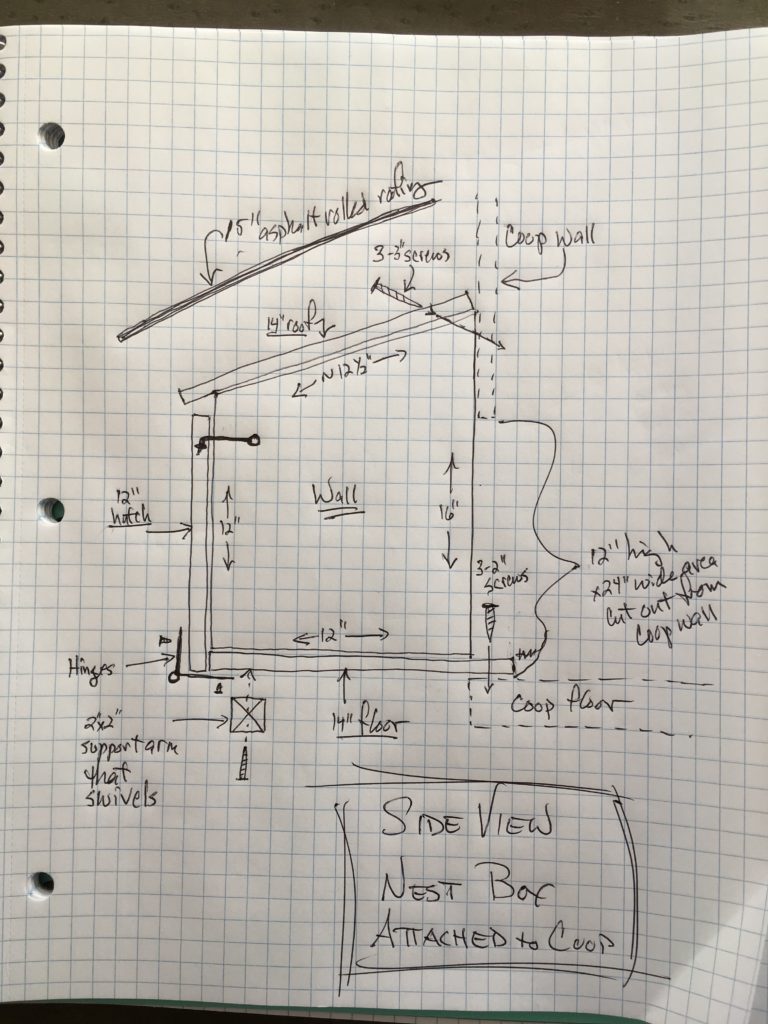 15" asphalt rolled rofing
Coop Wall
3-3" screws
14" roof
~12 1/2"
12"
hatch
12"
Wall
16"
3-2"
screws
12" high
x24" wide area
cut out from
coop wall
12"
Hinges
Coop floor
14" floor
2"x2"
support arm
that
swivels
SIDE VIEW
NEST BOX
ATTACHED to COOP